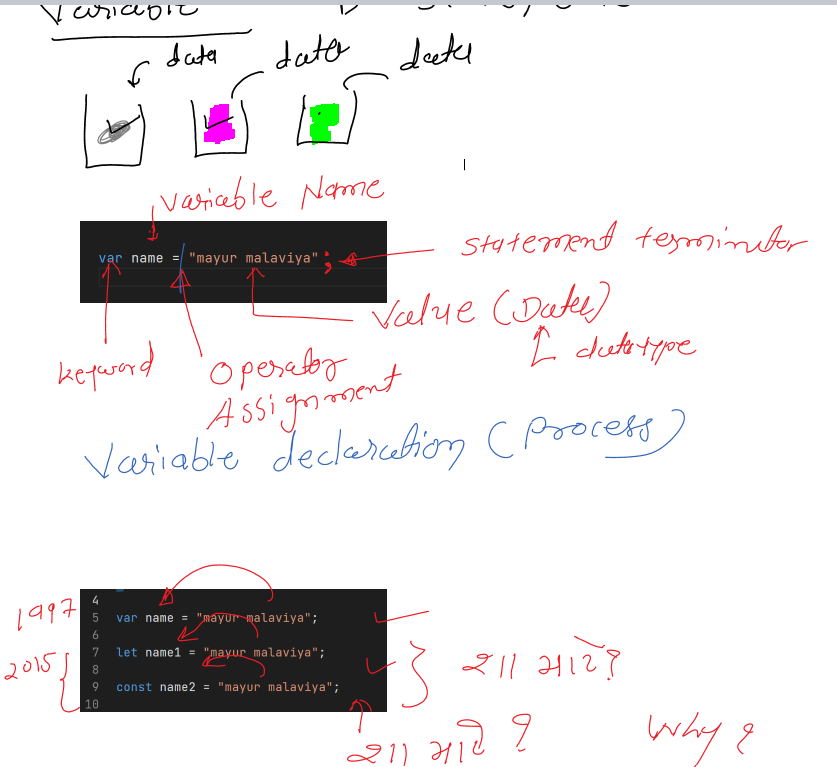 Variable
data data data
Variable Name
var name = "mayur malaviya" ;
statement terminator
Value (Data)
datatype
keyword
Operator
Assignment
Variable declaration (Process)
4
1997
5 var name = "mayur malaviya";
6
2015
7 let name1 = "mayur malaviya";
8
શા માટે?
9 const name2 = "mayur malaviya";
10
શા માટે ?
Why ?